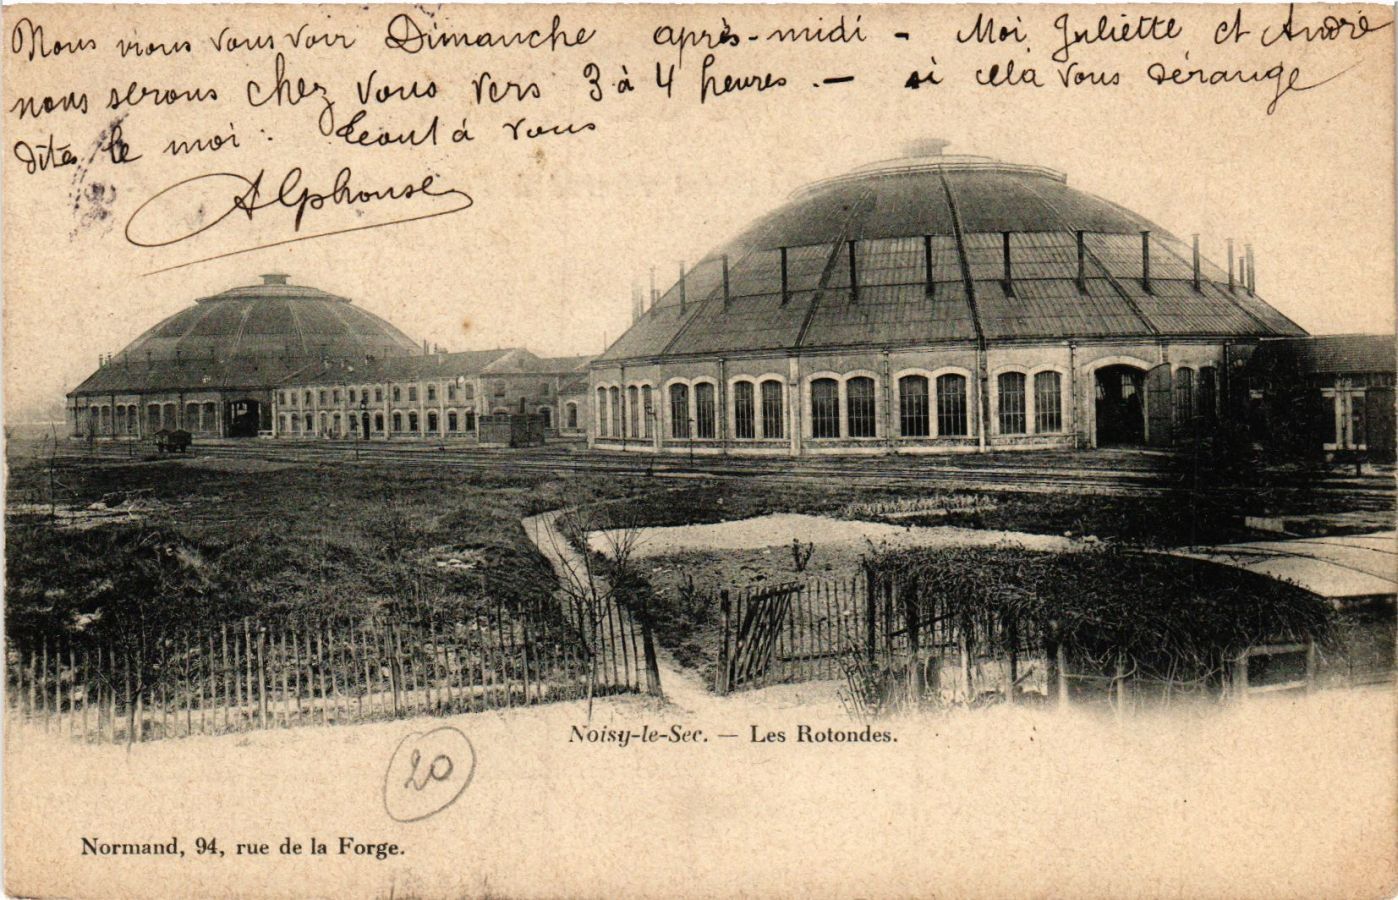 Nous vious vous voir Dimanche après-midi - Moi Juliette et André
nous serons chez vous vers 3 à 4 heures. — si cela vous dérange
dites le moi. Tout à vous
Alphonse
Noisy-le-Sec. — Les Rotondes.
20
Normand, 94, rue de la Forge.